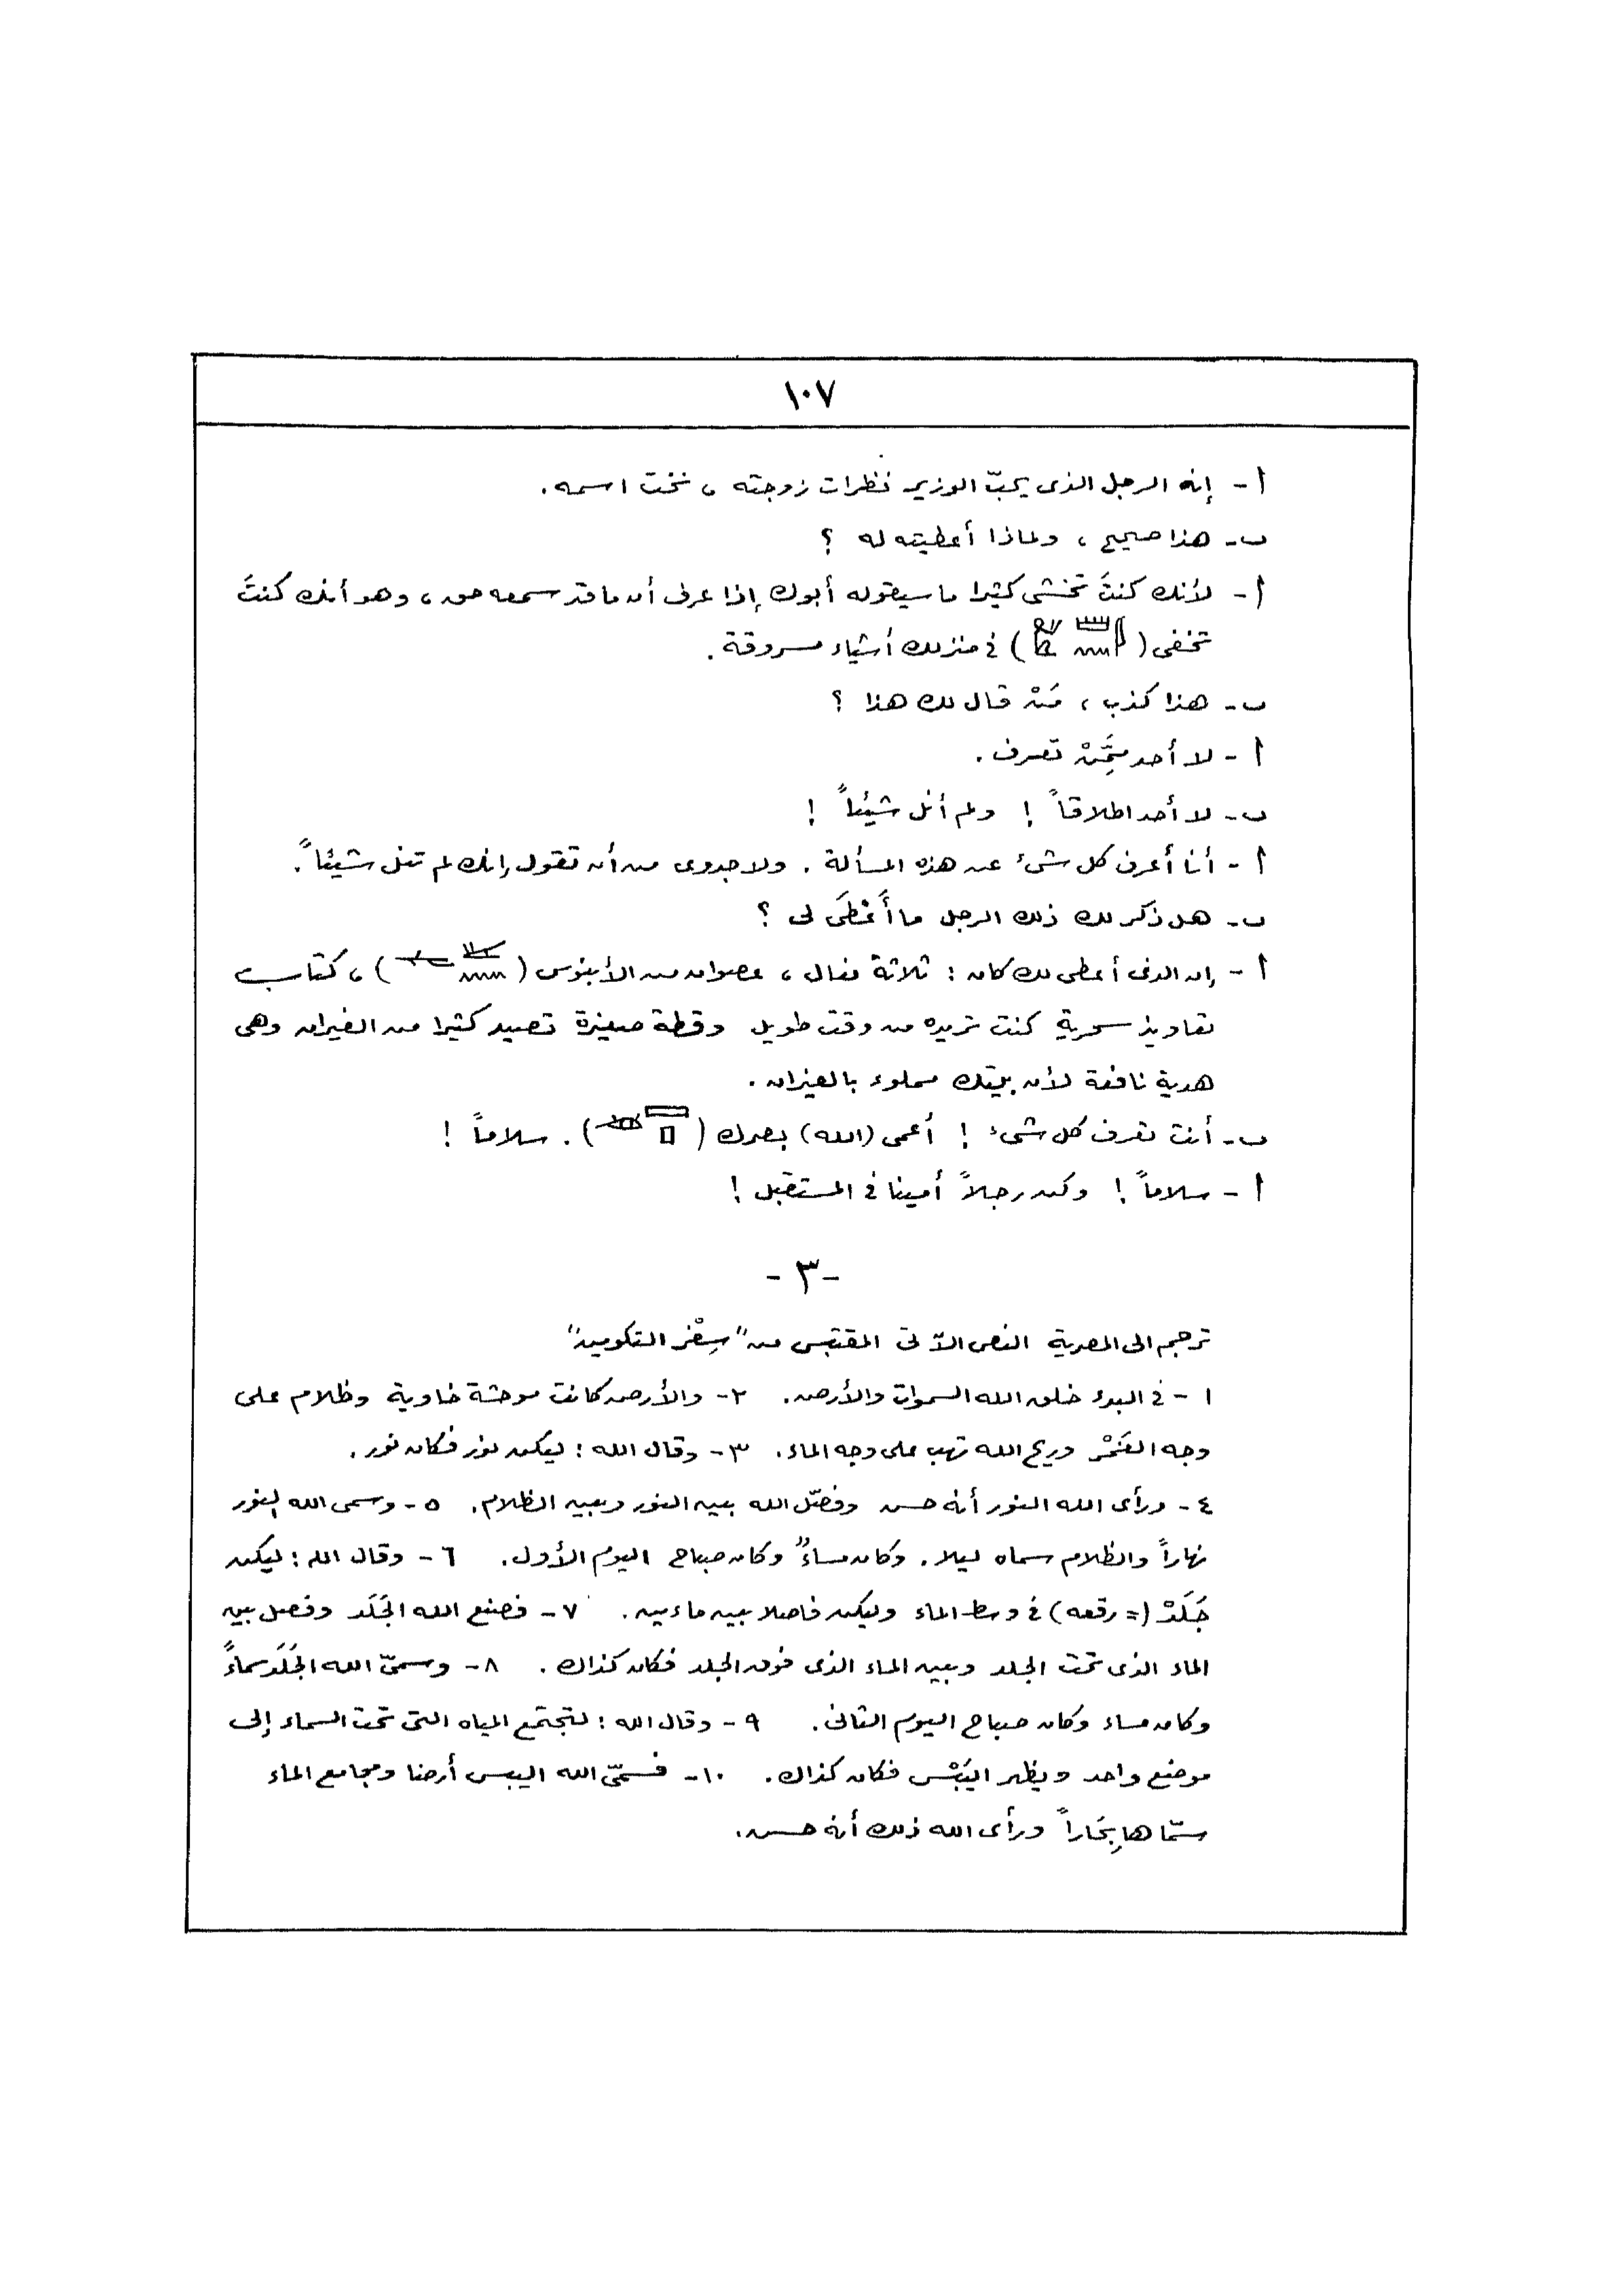 ١٠٧
أ - إنه الرجل الذى يحبّ الوزير نظرات زوجته ، نخت اسمه .
ب - هذا صحيح ، ولماذا أعطيته له ؟
أ - لأنك كنتَ تخشى كثيرا ما سيقوله أبوك إذا عرف أن ما قد سمعه حق ، وهو أنك كنتَ
تخفى ( 𓇋𓏠𓈖 ) فى منزلك أشياء مسروقة .
ب - هذا كذب ، مَنْ قال لك هذا ؟
أ - لا أحد مِمَّنْ تعرف .
ب - لا أحد اطلاقاً ! ولم أنل شيئاً !
أ - أنا أعرف كل شىء عن هذه المسألة . ولا جدوى من أن تقول إنك لم تنل شيئاً .
ب - هل ذكر لك ذلك الرجل ما أَعْطَى لى ؟
أ - إن الذى أعطى لك كان : ثلاثة نعال ، عصوان من الأبنوس ( ) ، كتاب
تعاويذ سحرية كنت تريده من وقت طويل وقطة صغيرة تصيد كثيرا من الفيران وهى
هدية نافعة لأن بيتك مملوء بالفيران .
ب - أنت تعرف كل شىء ! أعمى (الله) بصرك ( ) . سلاماً !
أ - سلاماً ! وكن رجلاً أمينا فى المستقبل !
- ٣ -
ترجم الى المصرية النص الآتى المقتبس من " سِفْر التكوين "
١ - فى البدء خلق الله السموات والأرض . ٢ - والأرض كانت موحشة خاوية وظلام على
وجه الغَمْر وريح الله تهب على وجه الماء . ٣ - وقال الله : ليكن نور فكان نور .
٤ - ورأى الله النور أنه حسن وفصّل الله بين النور وبين الظلام . ٥ - وسمى الله النور
نهاراً والظلام سماه ليلا . وكان مساءً وكان صباح اليوم الأول . ٦ - وقال الله : ليكن
جَلَدْ (= رقعه) فى وسط الماء وليكن فاصلا بين ماءين . ٧ - فصنع الله الجَلَد وفصل بين
الماء الذى تحت الجلد وبين الماء الذى فوق الجلد فكان كذاك . ٨ - وسمىّ الله الجَلَد سماءً
وكان مساء وكان صباح اليوم الثانى . ٩ - وقال الله : لتجتمع المياه التى تحت السماء إلى
موضع واحد ويظهر اليَبْس فكان كذاك . ١٠ - فسمّى الله اليبس أرضا ومجامع الماء
سمّاها بِحَاراً ورأى الله ذلك أنه حسن .